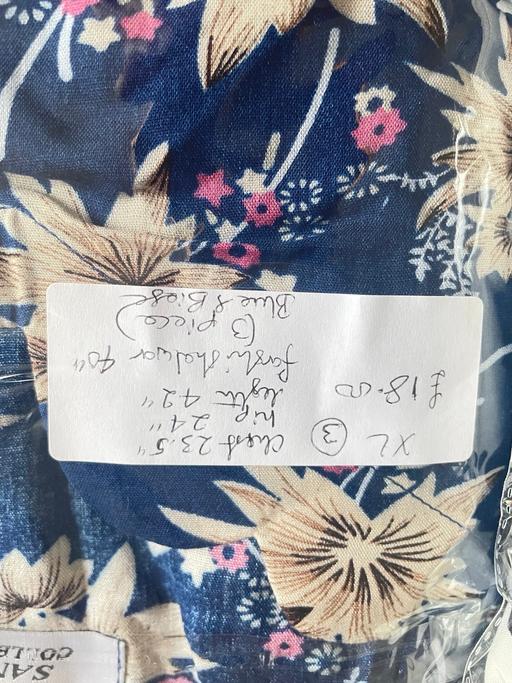 XL ③ chest 23.5"
hip 24"
£18.00 length 42"
farshi shalwar 40"
(3 piece)
Blue & Biege
COLLE